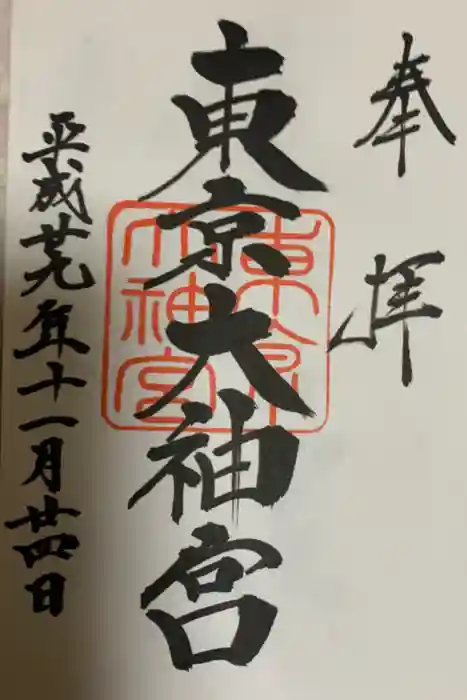 奉拝
東京大神宮
東京大神宮
平成廿九年十一月廿四日